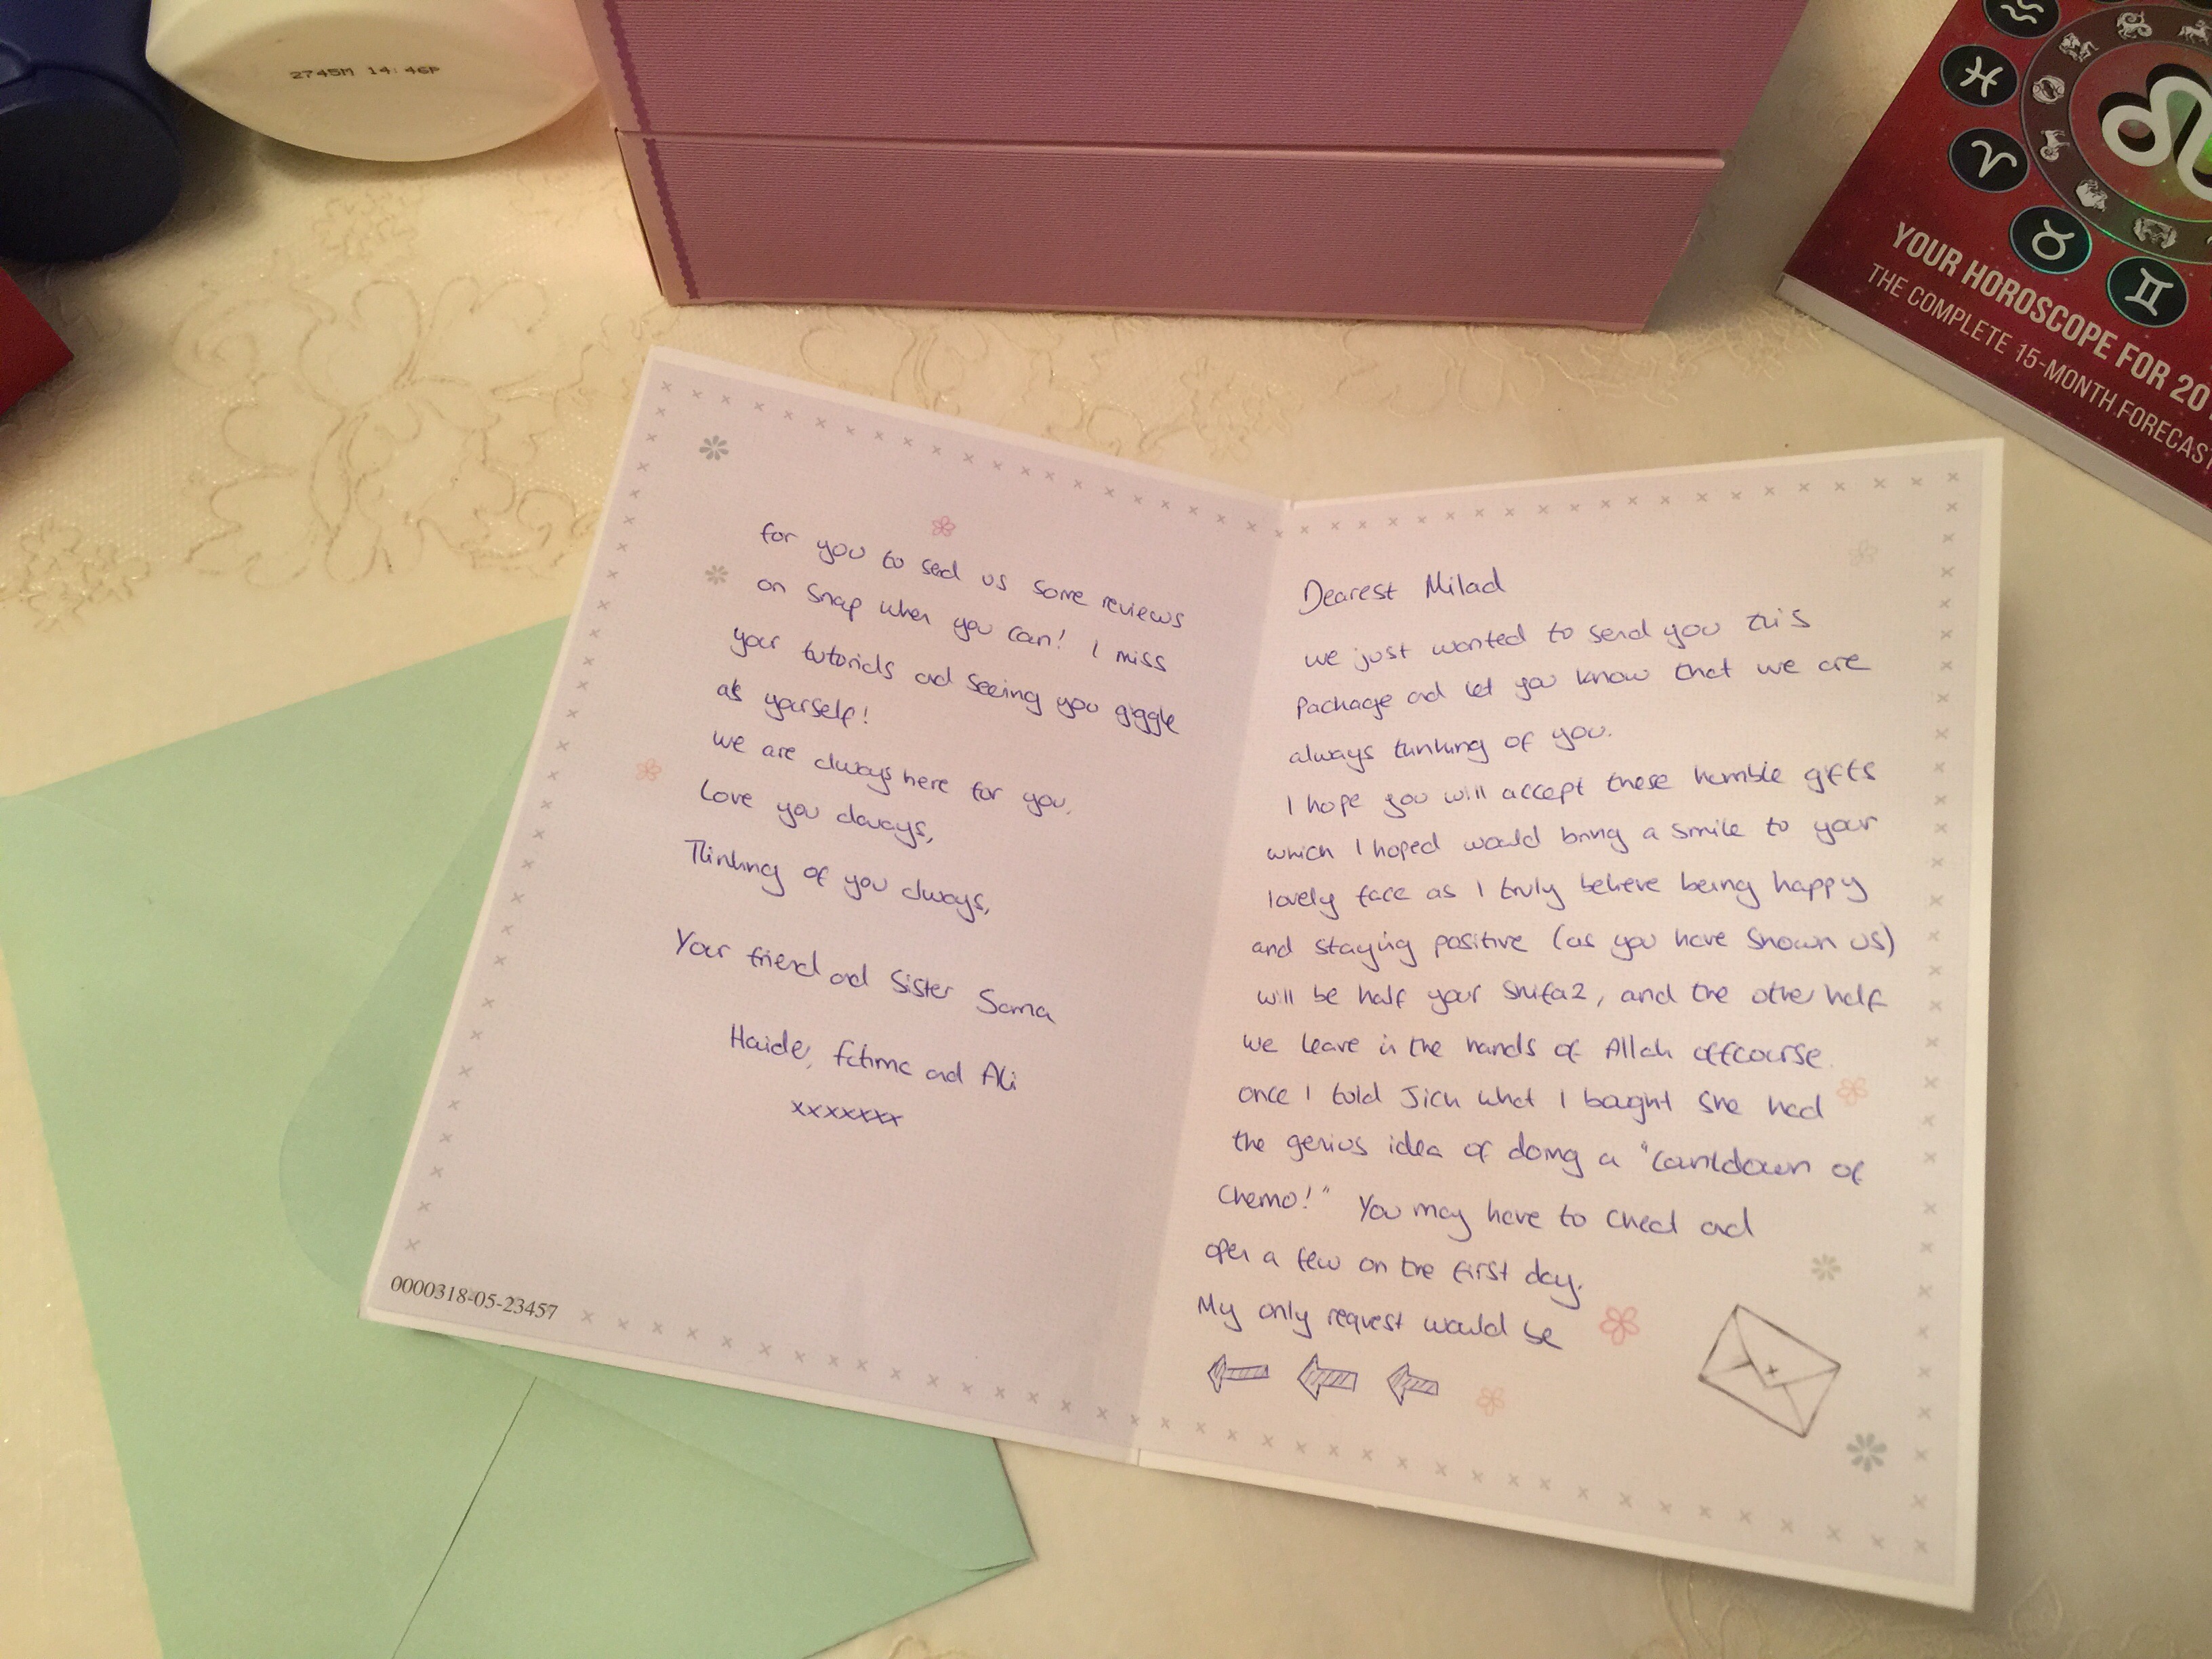 2745M 14:46P
YOUR HOROSCOPE FOR 20
THE COMPLETE 15-MONTH FORECAST
Dearest Milad
we just wanted to send you this
Package and let you know that we are
always thinking of you.
I hope you will accept these humble gifts
which I hoped would bring a smile to your
lovely face as I truly believe being happy
and staying positive (as you have shown us)
will be half your Shifa2, and the other half
we leave in the hands of Allah offcourse.
once I told Jich what I bought she had
the genius idea of doing a "Countdown of
Chemo!" You may have to cheat and
open a few on the first day.
My only request would be
for you to send us some reviews
on Snap when you can! I miss
your tutorials and seeing you giggle
at yourself!
we are always here for you.
Love you always,
Thinking of you always,
Your friend and Sister Sama
Haider, Fatima and Ali
xxxxxxx
0000318-05-23457